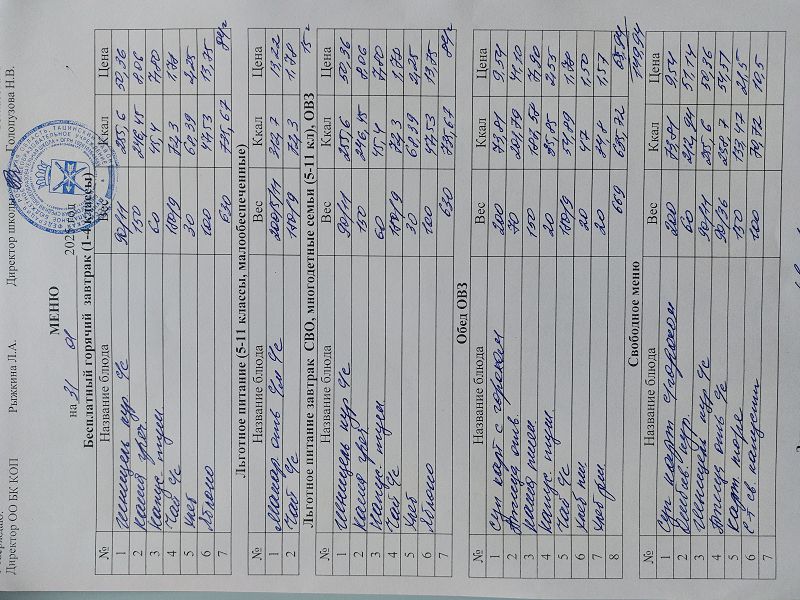 Директор ОО БК КОП Рыжкина Л.А. Директор школы Голопузова Н.В.
МЕНЮ
на 31 01 2025 год
Бесплатный горячий завтрак (1-4 классы)
№ Название блюда Вес Ккал Цена
1 Шницель кур ч/с 90/11 255,6 50,36
2 каша греч 150 246,45 8.06
3 капус. туш 60 45,4 7,80
4 Чай ч/с 180/9 72,3 1.70
5 хлеб 30 68.39 2,25
6 Яблоко 100 47.53 13,75
7 630 735,67 84г
Льготное питание (5-11 классы, малообеспеченные)
№ Название блюда Вес Ккал Цена
1 Макар. отв ч/с 200/5/11 312,7 13.22
2 Чай ч/с 180/9 72,3 1,70
15г
Льготное питание завтрак СВО, многодетные семьи (5-11 кл), ОВЗ
№ Название блюда Вес Ккал Цена
1 Шницель кур ч/с 90/11 255,6 50,36
2 каша греч 150 246.45 8.06
3 капус. туш 60 45.4 7,80
4 Чай ч/с 180/9 72,3 1.70
5 хлеб 30 68.39 2,25
6 Яблоко 100 47.53 13,75
7 630 735,67 84г
Обед ОВЗ
№ Название блюда Вес Ккал Цена
1 Суп карт с горохом 200 73,81 9,54
2 Птица отв. 70 202,79
3 каша 150 187,58 7,90
4 капус. туш 20 2,55
5 Чай ч/с 180/9 54,89 1,70
6 хлеб пш 20 47 1,50
7 хлеб рж 20 34,8 1,57
8 669
Свободное меню 149,94
№ Название блюда Вес Ккал Цена
1 Суп карт с горохом 200 73,81 9,54
2 кур. 60 212,94 57.14
3 Шницель кур ч/с 90/11 255.6 50,36
4 Птица отв ч/с 90/36 258.7 54,57
5 карт пюре 150 133,47 21,5
6 с-т св. капусты 100 79,72 10.5
7